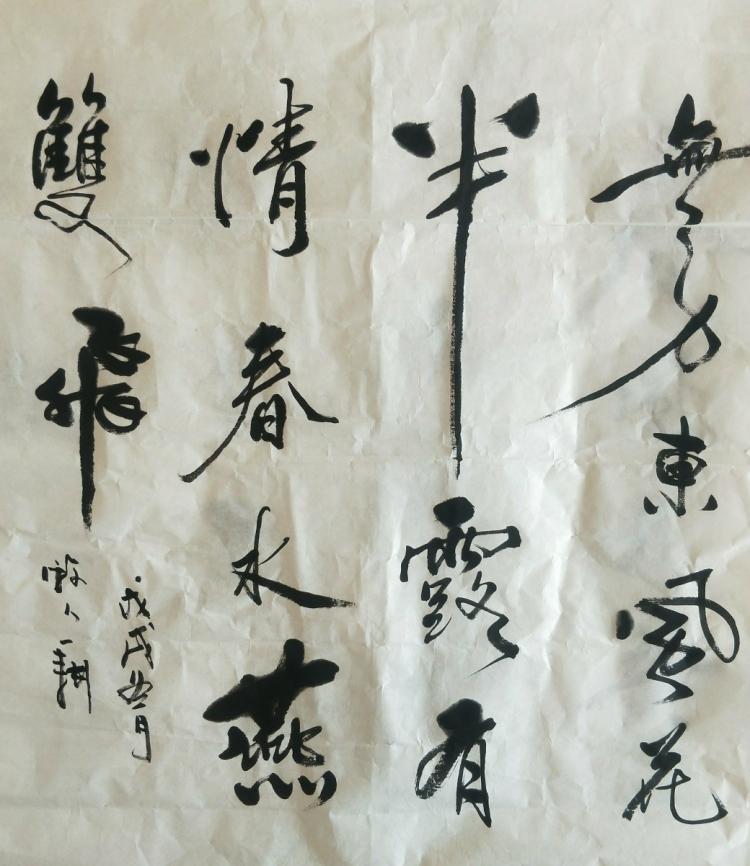 無力東風花
半露有
情春水燕
雙飛
戊戌 月
人一